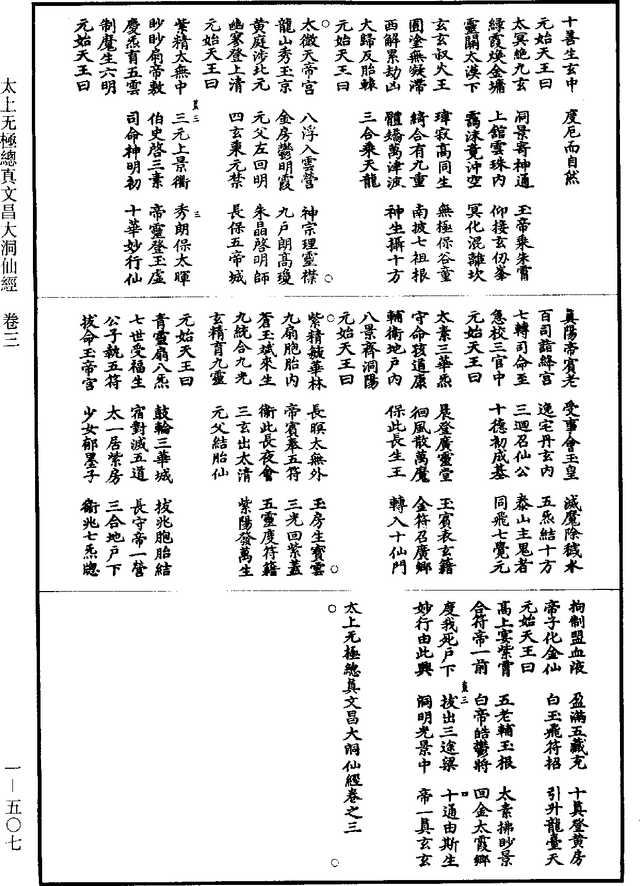 十善生玄中 度厄而自然
元始天王曰
太冥絶九玄 洞景寄神通 玉帝乘朱霄
緑霞煥金墉 上館雲珠内 仰接玄仞峯
靈關太漠下 靄沫竟沖空 冥化混離坎
玄玄叔火王 瑋寂高同生 無極保谷童
圓塗無凝滯 綺合有九重 南披七祖根
西解累劫凶 體矯萬津波 神生攝十方
大歸反胎轅 三合乘天龍
元始天王曰 ○
太微天帝宫 八浮入雲營 神宗理靈襟
龍山秀玉京 金房鬱明霞 九戶朗高瓊
黄庭涉北元 元父左回明 朱晶啓明師
幽寥登上清 四玄乘元禁 長保五帝城
元始天王曰
紫精太無中 三元上景衢 秀朗保太暉
眇眇扇帝敷 伯史啓三素 帝靈登玉虛
慶炁育五雲 司命神明初 十華妙行仙
制魔生六明
元始天王曰
真陽帝賓老 受事會玉皇 滅魔除穢水
百司詣絳宫 逸宅丹玄内 五炁結十方
七轉司命至 三迴召仙公 泰山主鬼者
急校三官中 十德初成基 同飛七覺元
元始天王曰
太素三華炁 晨登廣靈堂 玉賓表玄籍
守命筱道康 徊風散萬魔 金符召廣鄉
輔衛地戶内 保此長生王 轉入十仙門
八景齊洞陽
元始天王曰 ○
紫精鍼華林 長暝太無外 玉房生寳雲
九扇胞胎内 帝賓奉五符 三光回紫蓋
蒼玉斌來生 衛此長夜會 五靈度符籍
九統合九光 三玄出太清 紫陽發萬生
玄精育九靈 元父結胎仙
元始天王曰
青靈扇八炁 鼓輪三華城 拔兆胞胎結
七世受福生 宿對滅五道 長守帝一營
公子執五符 太一居紫房 三合地戶下
拔命玉帝宫 少女郁墨子 衛兆七炁牕
拘制盟血液 盈滿五藏充 十真登黄房
帝子化金仙 白玉飛符招 引升龍臺天
元始天王曰
高上宴紫霄 五老輔玉根 太素拂眇景
合符帝一前 白帝皓鬱將 回金太霞鄉
度我死戶下 拔出三途梁 十通由斯生
妙行由此興 洞明光景中 帝一真玄玄
太上无極總真文昌大洞仙經卷之三
太上无極總真文昌大洞仙經 卷三
一—五〇七